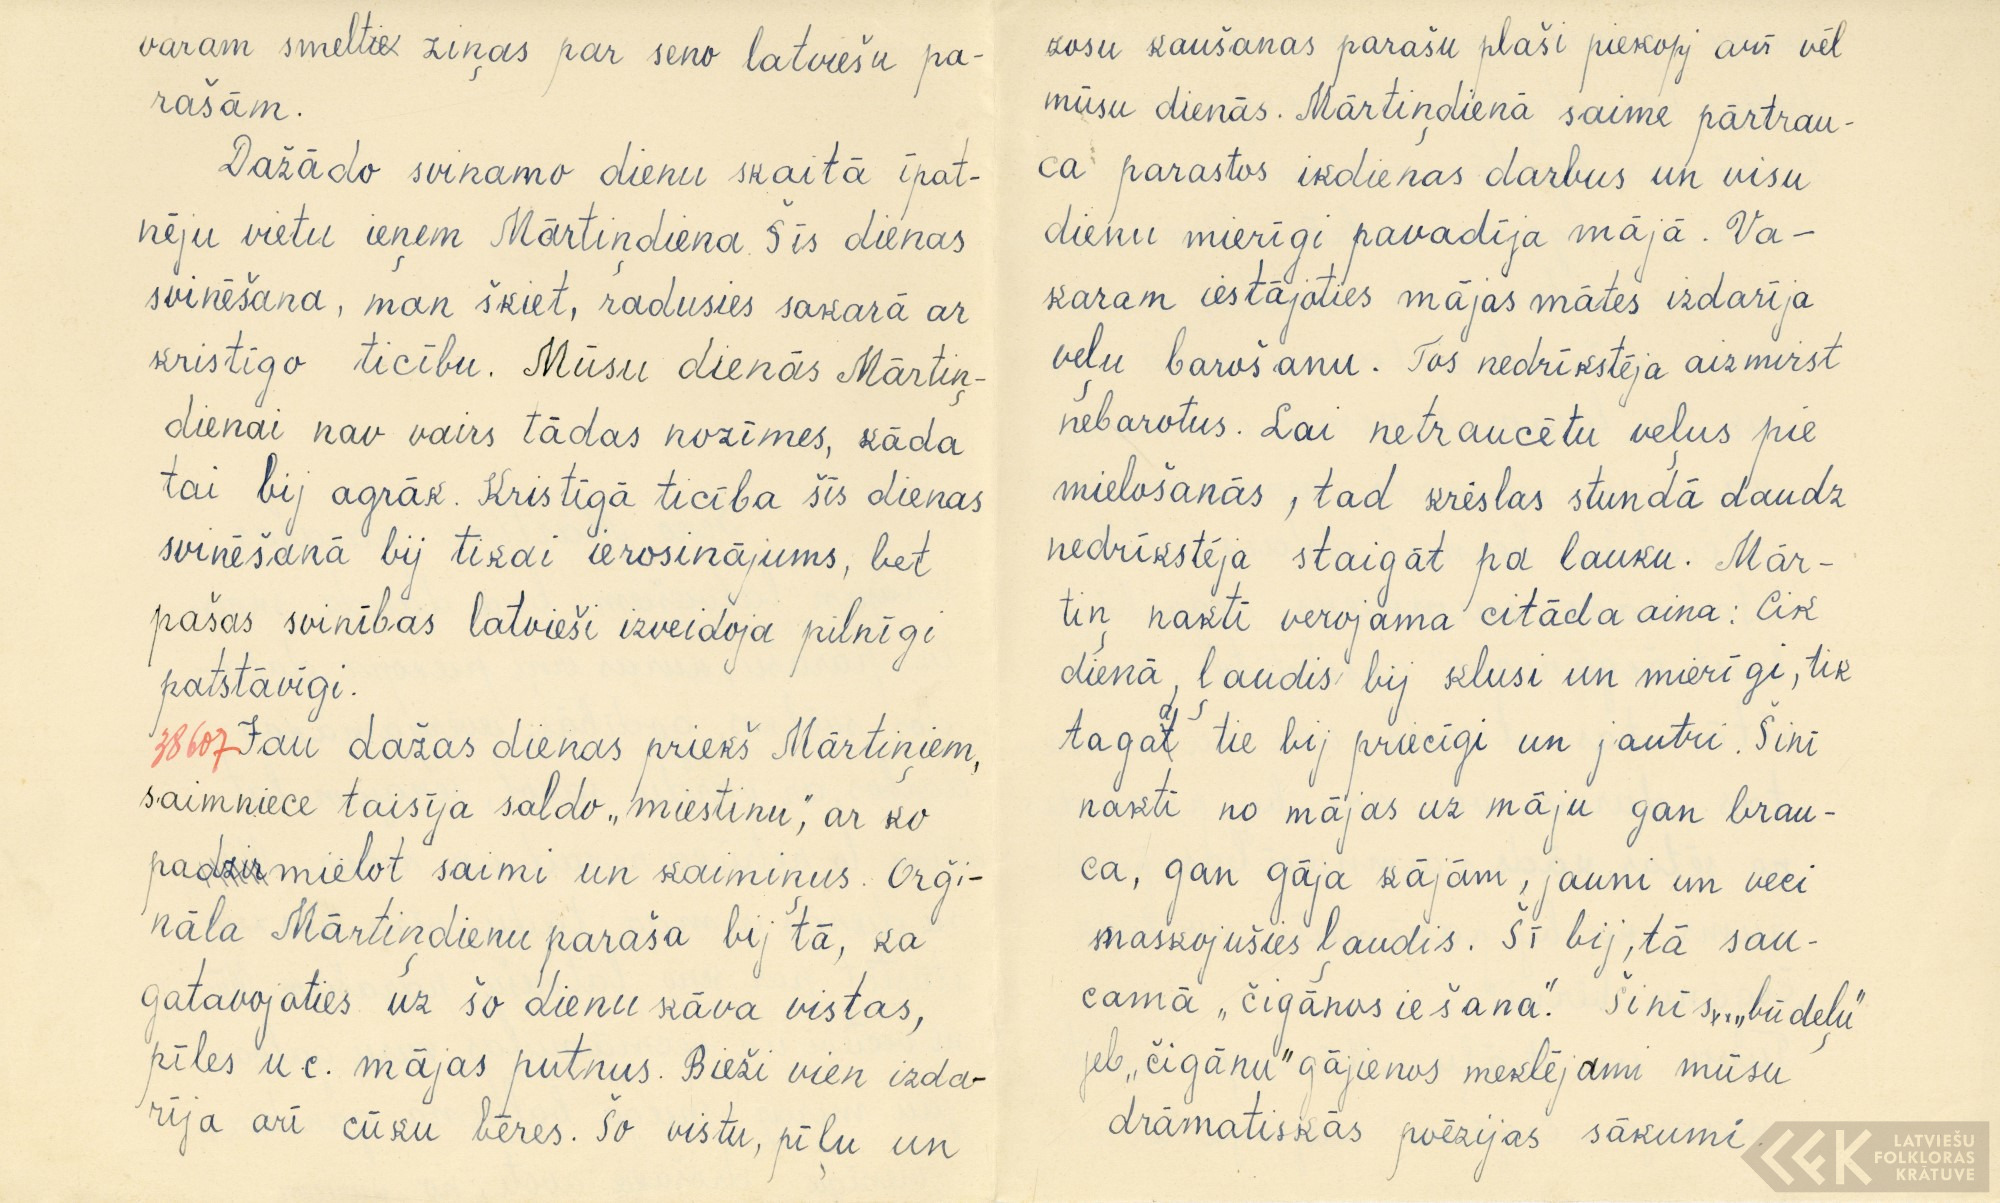 varam smeltiex ziņas par seno latviešu pa-
rašām.
Dažādo svinamo dienu skaitā īpat-
nēju vietu ieņem Mārtiņdiena. Šīs dienas
svinēšana, man šķiet, radusies sakarā ar
kristīgo ticību. Mūsu dienās Mārtiņ-
dienai nav vairs tādas nozīmes, kāda
tai bij agrāk. Kristīgā ticība šīs dienas
svinēšanā bij tikai ierosinājums, bet
pašas svinības latvieši izveidoja pilnīgi
patstāvīgi.
38607 Jau dažas dienas priekš Mārtiņiem,
saimniece taisīja saldo „miestiņu", ar ko
pamielot saimi un kaimiņus. Orģi-
nāla Mārtiņdienu paraša bij tā, ka
gatavojoties uz šo dienu kāva vistas,
pīles u c. mājas putnus. Bieži vien izda-
rīja arī cūku bēres. Šo vistu, pīļu un
zosu kaušanas parašu plaši piekopj arī vēl
mūsu dienās. Mārtiņdienā saime pārtrau-
ca parastos ikdienas darbus un visu
dienu mierīgi pavadīja mājā. Va-
karam iestājoties mājas mātes izdarīja
veļu barošanu. Tos nedrīkstēja aizmirst
nebarotus. Lai netraucētu veļus pie
mielošanās, tad krēslas stundā daudz
nedrīkstēja staigāt pa lauku. Mār-
tiņ naktī verojama citāda aina: Cik
dienā ļaudis bij klusi un mierīgi, tik
tagad tie bij priecīgi un jautri. Šinī
naktī no mājas uz māju gan brau-
ca, gan gāja kājām, jauni un veci
maskojušies ļaudis. Šī bij, tā sau-
camā „čigānos iešana". Šinīs „būdeļu"
jeb „čigānu" gājienos meklējami mūsu
drāmatiskās poēzijas sākumi.
LATVIEŠU
FOLKLORAS
KRĀTUVE